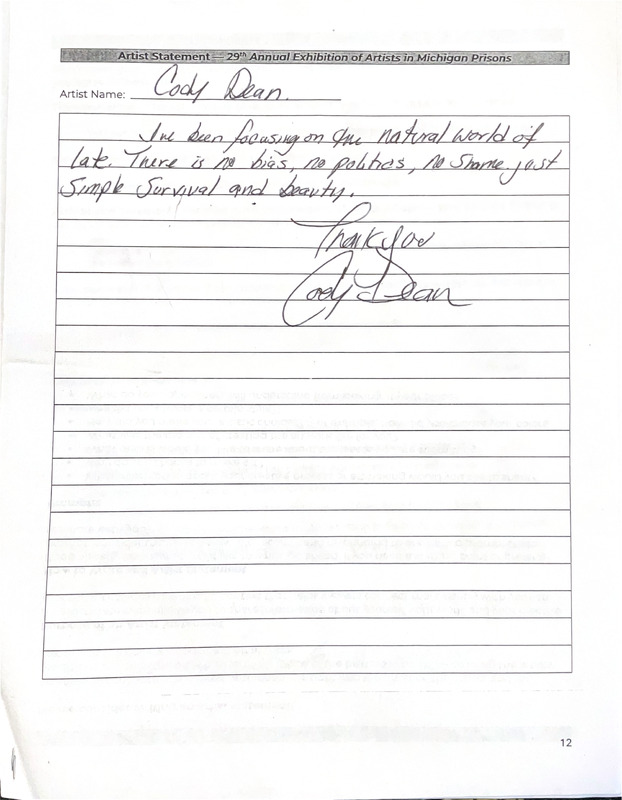 Artist Statement — 29th Annual Exhibition of Artists in Michigan Prisons
Artist Name: Cody Dean.
I've been focusing on the natural world of
late. There is no bias, no politics, no shame. just
simple survival and beauty.
Thank you
Cody Dean
12